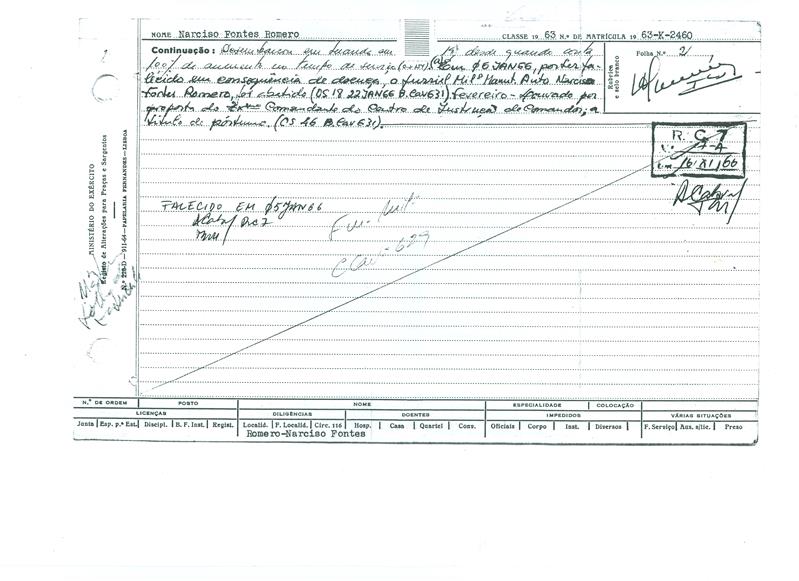 NOME Narciso Fontes Romero CLASSE 19 63 N.º DE MATRÍCULA 19 63-K-2460
Continuação: Desembarcou em Luanda em desde quando conta
100% de aumento no tempo de serviço Em 05JAN66, por ter fa-
lecido em consequência de doença, o furriel Milº Manut. Auto Narciso
Fontes Romero, foi abatido (OS 18 22JAN66 B.Cav631). Fevereiro - Louvado por
proposta do Exmo Comandante do Centro de Instrução de Comandos, a
título de póstumo. (OS 46 B.Cav631).
Folha N.º 2
Rubrica e selo branco
R. C. 7
16 XI 66
FALECIDO EM 05JAN66
C Cav 629
MINISTÉRIO DO EXÉRCITO
Registo de Alterações para Praças e Sargentos
N.º 228-D — 911-64 — PAPELARIA FERNANDES — LISBOA
N.º DE ORDEM POSTO NOME ESPECIALIDADE COLOCAÇÃO
LICENÇAS DILIGÊNCIAS DOENTES IMPEDIDOS VÁRIAS SITUAÇÕES
Junta Esp. p.ª Est. Discipl. B. F. Inst. Regist. Localid. F. Localid. Circ. 116 Hosp. Casa Quartel Conv. Oficiais Corpo Inst. Diversos F. Serviço Aus. s/lic. Preso
Romero-Narciso Fontes